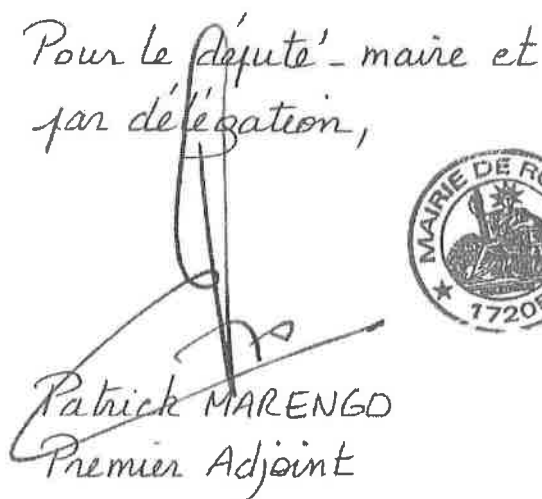 Pour le député-maire et
par délégation,
MAIRIE DE RO
1720
Patrick MARENGO
Premier Adjoint